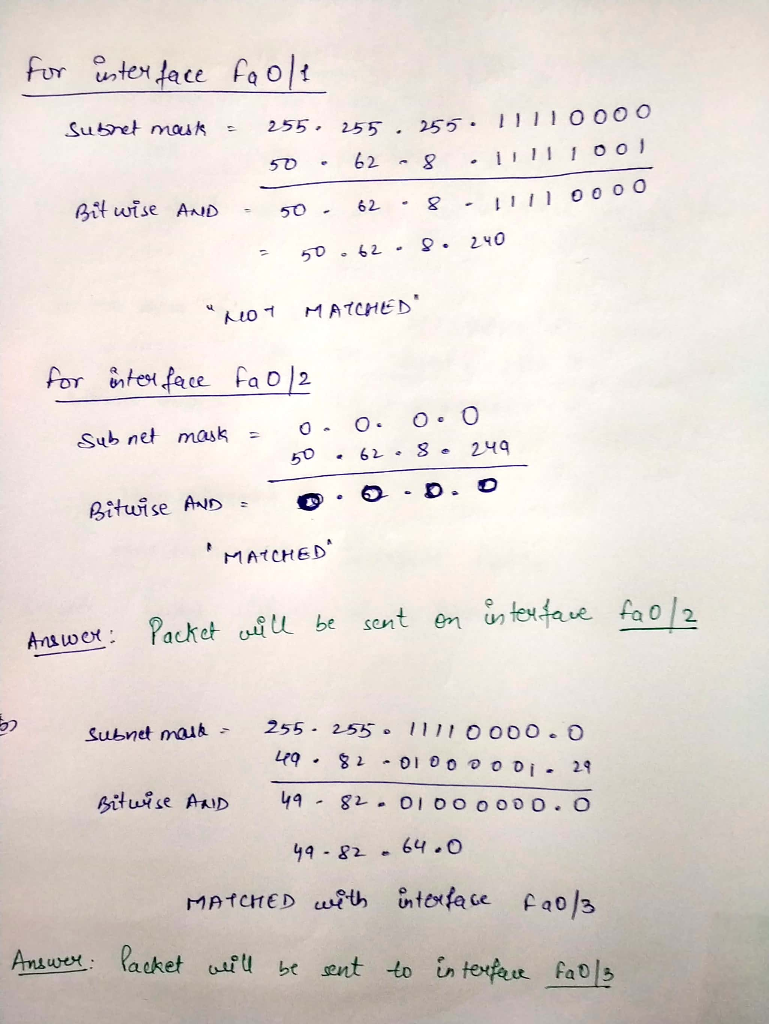 For interface fa0/1
Subnet mask = 255. 255. 255. 11110000
50 . 62 . 8 . 11111001
Bitwise AND = 50 . 62 . 8 . 11110000
= 50 . 62 . 8 . 240
"NOT MATCHED"
For interface fa0/2
Subnet mask = 0. 0. 0. 0
50 . 62 . 8 . 249
Bitwise AND = 0 . 0 . 0. 0
"MATCHED"
Answer: Packet will be sent on interface fa0/2
b) Subnet mask = 255. 255. 11110000. 0
49 . 82 . 01000001. 29
Bitwise AND 49 . 82 . 01000000. 0
49 . 82 . 64 . 0
MATCHED with interface fa0/3
Answer: Packet will be sent to interface fa0/3